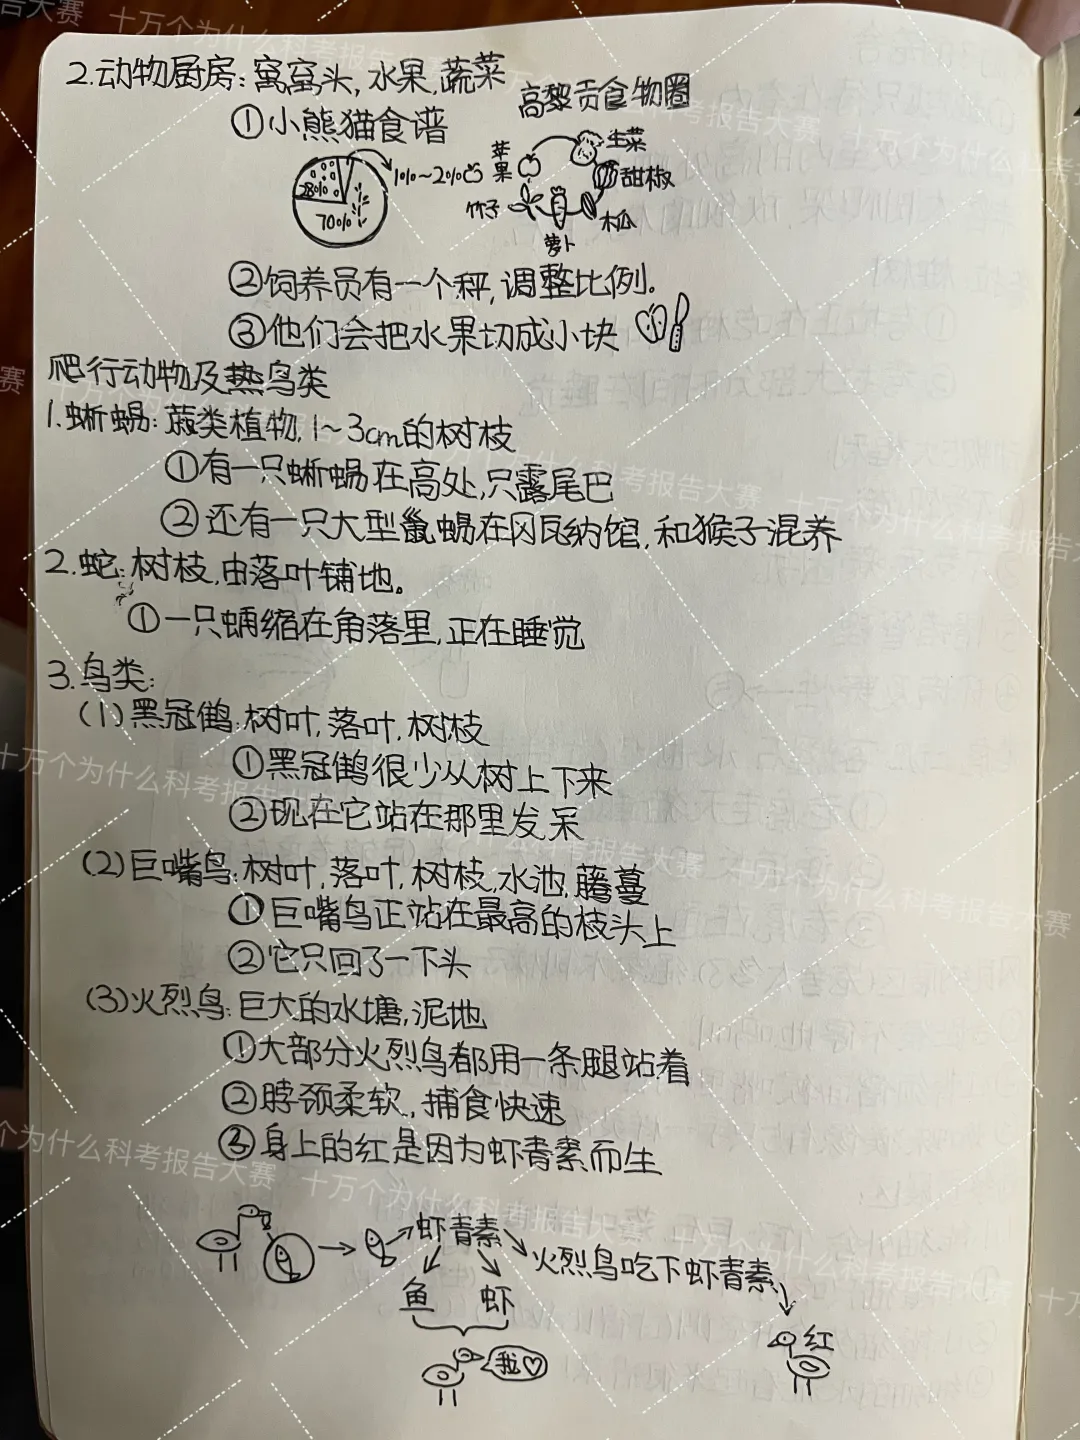 2.动物厨房:窝窝头,水果,蔬菜
①小熊猫食谱
高黎贡食物圈
28%
70%
1%~2%
苹果
生菜
甜椒
木瓜
萝卜
竹子
②饲养员有一个秤,调整比例.
③他们会把水果切成小块
爬行动物及热鸟类
1.蜥蜴:蕨类植物,1~3cm的树枝
①有一只蜥蜴在高处,只露尾巴
②还有一只大型鬣蜴在冈瓦纳馆,和猴子混养
2.蛇:树枝,由落叶铺地。
①一只蝻缩在角落里,正在睡觉
3.鸟类:
(1)黑冠鹤:树叶,落叶,树枝
①黑冠鹤很少从树上下来
②现在它站在那里发呆
(2)巨嘴鸟:树叶,落叶,树枝,水池,藤蔓
①巨嘴鸟正站在最高的枝头上
②它只回了一下头
(3)火烈鸟:巨大的水塘,泥地
①大部分火烈鸟都用一条腿站着
②脖颈柔软,捕食快速
③身上的红是因为虾青素而生
虾青素
火烈鸟吃下虾青素
鱼 虾
红
我
十万个为什么科考报告大赛